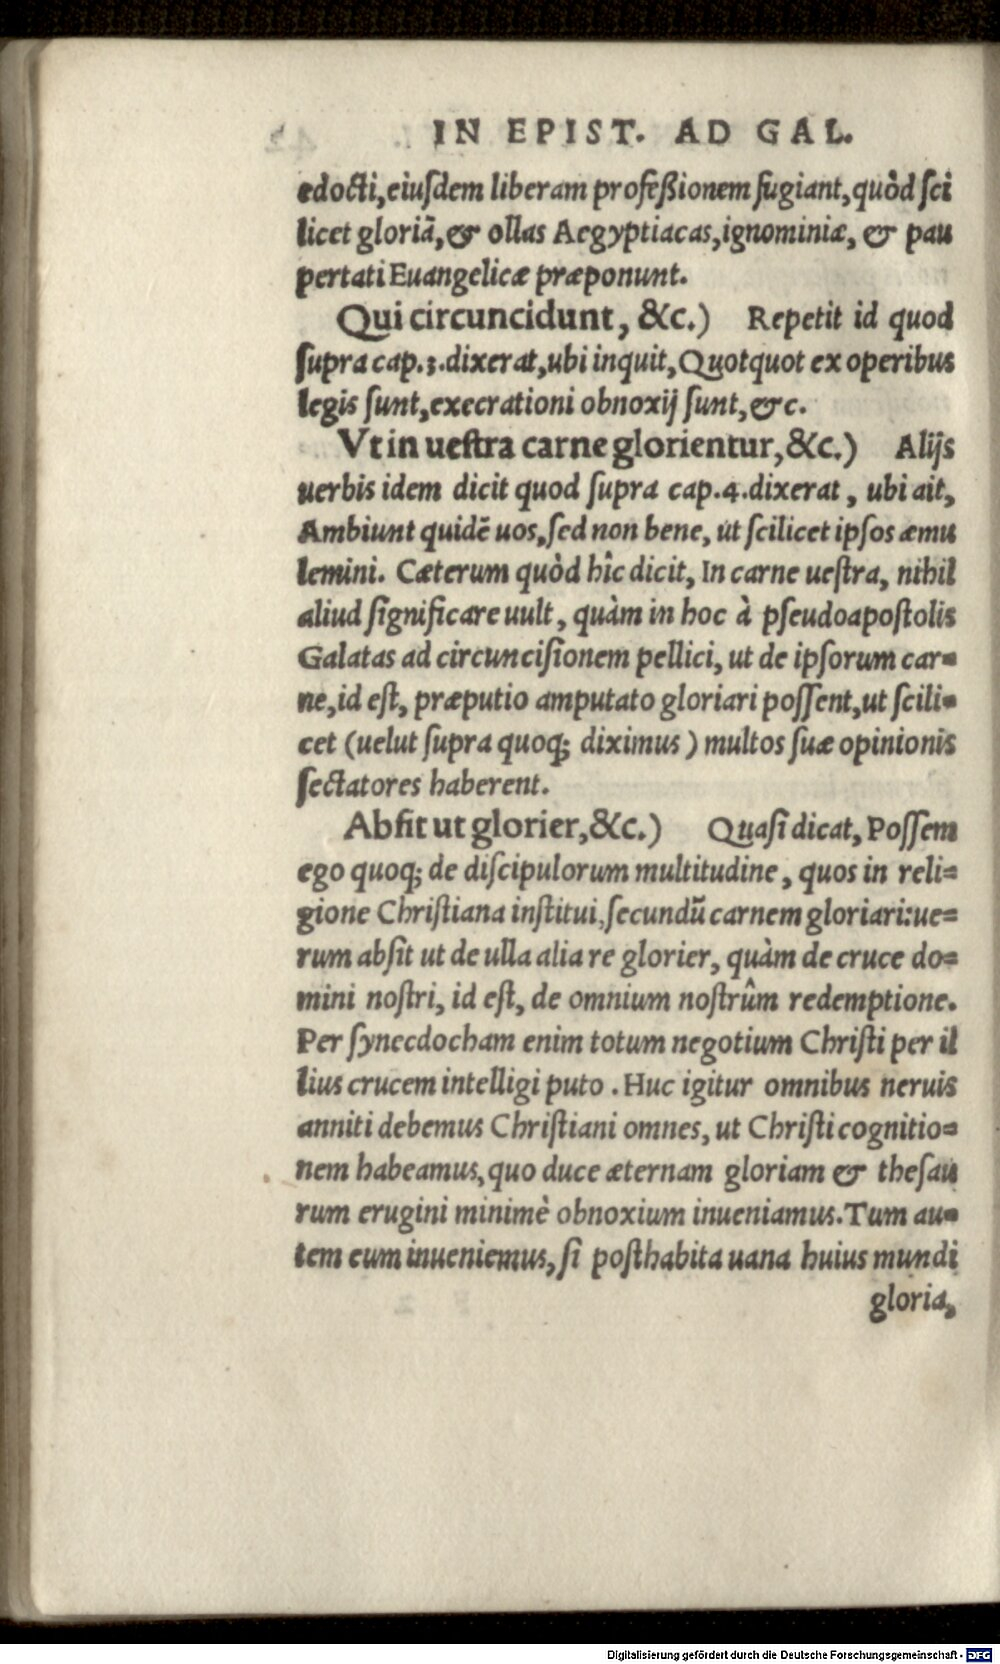 IN EPIST. AD GAL.
edocti, eiuſdem liberam profeßionem fugiant, quòd ſci
licet gloriã, & ollas Aegyptiacas, ignominiæ, & pau
pertati Euangelicæ præponunt.
Qui circuncidunt, &c.) Repetit id quod
ſupra cap.3.dixerat, ubi inquit, Quotquot ex operibus
legis ſunt, execrationi obnoxij ſunt, &c.
Vt in ueſtra carne glorientur, &c.) Alijs
uerbis idem dicit quod ſupra cap.4.dixerat, ubi ait,
Ambiunt quidẽ uos, ſed non bene, ut ſcilicet ipſos æmu
lemini. Cæterum quòd hîc dicit, In carne ueſtra, nihil
aliud ſignificare uult, quàm in hoc à pſeudoapoſtolis
Galatas ad circunciſionem pellici, ut de ipſorum car-
ne, id eſt, præputio amputato gloriari poſſent, ut ſcili-
cet (uelut ſupra quoq; diximus) multos ſuæ opinionis
ſectatores haberent.
Abſit ut glorier, &c.) Quaſi dicat, Poſſem
ego quoq; de diſcipulorum multitudine, quos in reli-
gione Chriſtiana inſtitui, ſecundũ carnem gloriari: ue-
rum abſit ut de ulla alia re glorier, quàm de cruce do-
mini noſtri, id eſt, de omnium noſtrûm redemptione.
Per ſynecdocham enim totum negotium Chriſti per il
lius crucem intelligi puto. Huc igitur omnibus neruis
anniti debemus Chriſtiani omnes, ut Chriſti cognitio-
nem habeamus, quo duce æternam gloriam & theſau
rum erugini minimè obnoxium inueniamus. Tum au-
tem eum inueniemus, ſi poſthabita uana huius mundi
gloria,
Digitalisierung gefördert durch die Deutsche Forschungsgemeinschaft - DFG